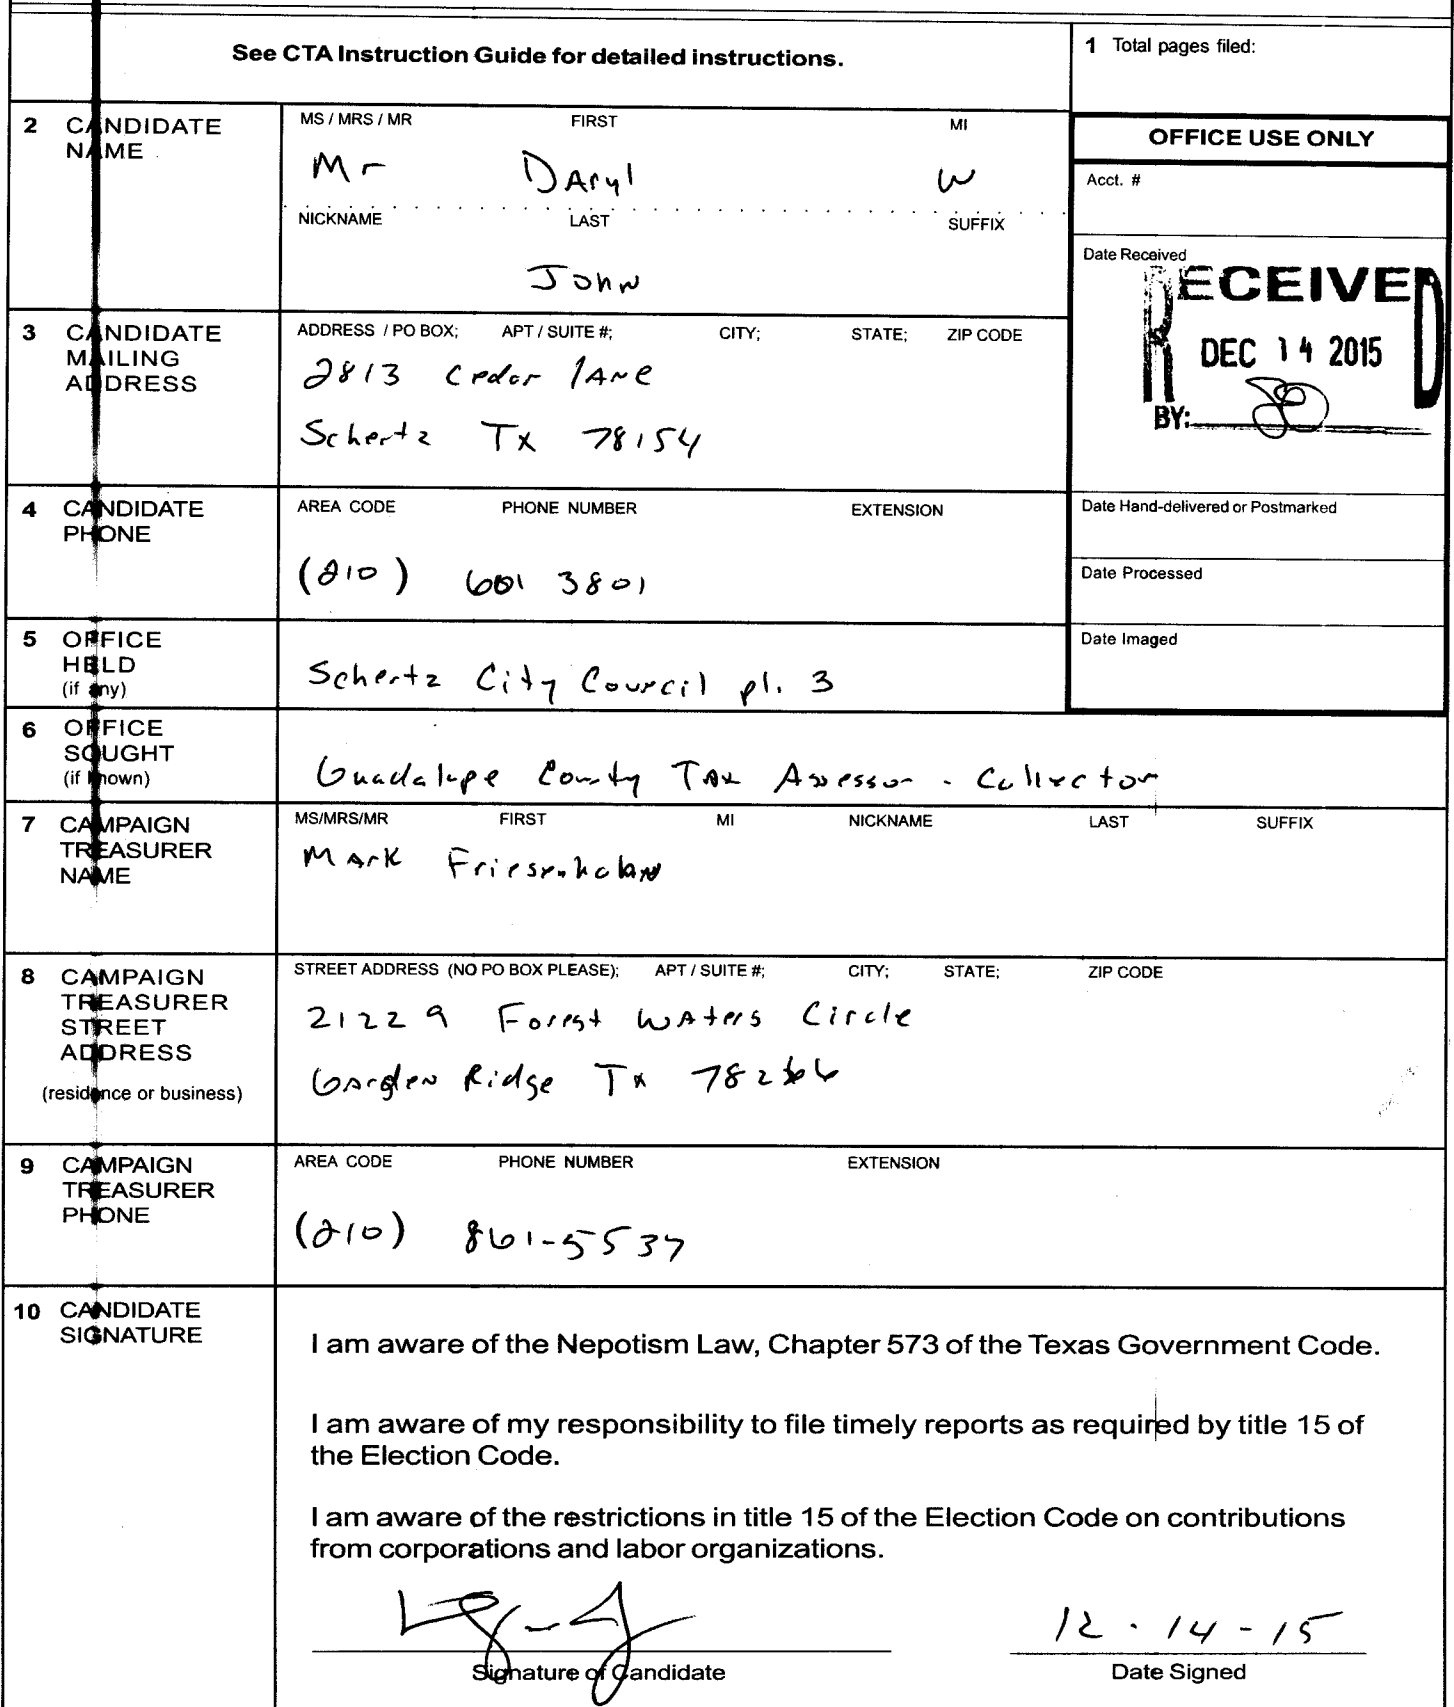 See CTA Instruction Guide for detailed instructions.
1 Total pages filed:
2 CANDIDATE NAME
MS / MRS / MR FIRST MI
Mr Daryl W
NICKNAME LAST SUFFIX
John
OFFICE USE ONLY
Acct. #
Date Received
RECEIVED
DEC 14 2015
BY:
3 CANDIDATE MAILING ADDRESS
ADDRESS / PO BOX; APT / SUITE #; CITY; STATE; ZIP CODE
2813 Cedar lane
Schertz Tx 78154
4 CANDIDATE PHONE
AREA CODE PHONE NUMBER EXTENSION
(210) 601 3801
Date Hand-delivered or Postmarked
Date Processed
Date Imaged
5 OFFICE HELD
(if any)
Schertz City Council pl. 3
6 OFFICE SOUGHT
(if known)
Guadalupe County Tax Assessor - Collector
7 CAMPAIGN TREASURER NAME
MS/MRS/MR FIRST MI NICKNAME LAST SUFFIX
Mark Friesenhahn
8 CAMPAIGN TREASURER STREET ADDRESS
(residence or business)
STREET ADDRESS (NO PO BOX PLEASE); APT / SUITE #; CITY; STATE; ZIP CODE
21229 Forest Waters Circle
Garden Ridge Tx 78266
9 CAMPAIGN TREASURER PHONE
AREA CODE PHONE NUMBER EXTENSION
(210) 861-5537
10 CANDIDATE SIGNATURE
I am aware of the Nepotism Law, Chapter 573 of the Texas Government Code.
I am aware of my responsibility to file timely reports as required by title 15 of
the Election Code.
I am aware of the restrictions in title 15 of the Election Code on contributions
from corporations and labor organizations.
12 - 14 - 15
Signature of Candidate
Date Signed